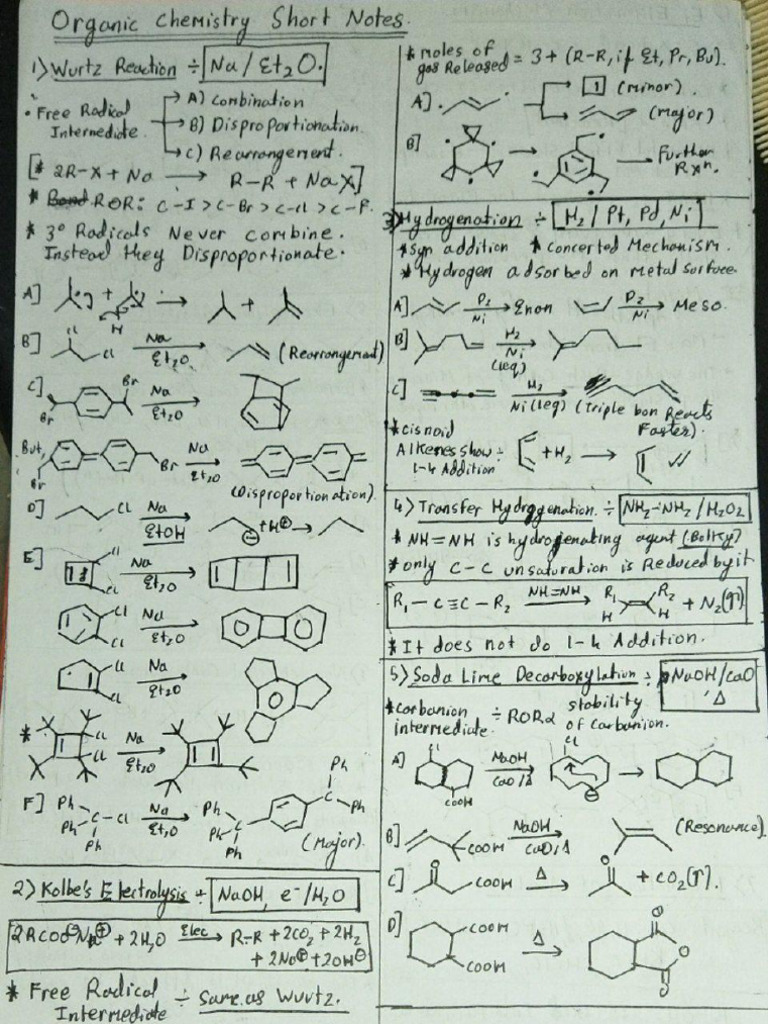 Organic Chemistry Short Notes.
1) Wurtz Reaction ÷ Na / Et2O.
• Free Radical Intermediate
A) Combination
B) Disproportionation
C) Rearrangement.
[* 2R-X + Na → R-R + NaX]
* ROR: C-I > C-Br > C-Cl > C-F.
* 3° Radicals Never Combine.
Instead they Disproportionate.
A] + → +
H
B] Cl Cl Na Et2O (Rearrangement)
C] Br Br Na Et2O
But, Br Br Na Et2O
(Disproportionation).
D] Cl Na EtOH ⊖ +H⊕ →
E] Cl Cl Na Et2O
Cl Cl Na Et2O
Cl Cl Na Et2O
* Cl Cl Na Et2O
F] Ph Ph Ph C-Cl Na Et2O Ph Ph Ph C C Ph Ph Ph
(Major).
2) Kolbe's Electrolysis ÷ NaOH, e⁻/H2O
2RCOO⊖Na⊕ + 2H2O Elec → R-R + 2CO2 + 2H2
+ 2Na⊕ + 2OH⊖
* Free Radical Intermediate ÷ Same as Wurtz.
* moles of gas Released = 3 + (R-R, if Et, Pr, Bu).
A] (minor)
(major)
B] → → Further Rxn.
3) Hydrogenation ÷ H2 / Pt, Pd, Ni
* Syn addition * Concerted Mechanism.
* Hydrogen adsorbed on metal surface
A] D2 Ni → D2 Ni → Meso.
B] H2 Ni (1eq)
C] H2 Ni (1eq) (Triple bon Reacts Faster).
* cisoid Alkenes show ÷ 1-4 Addition + H2 →
4) Transfer Hydrogenation ÷ NH2-NH2 / H2O2
* NH=NH is hydrogenating agent
* only C-C unsaturation is Reduced by it
R1 - C ≡ C - R2 NH=NH → R1 R2 H H + N2(↑)
* It does not do 1-4 Addition.
5) Soda Lime Decarboxylation ÷ NaOH/CaO, Δ
* Carbanion intermediate ÷ ROR α stability of Carbanion.
A] Cl COOH NaOH CaO/Δ Cl ⊖ →
B] COOH NaOH CaO,Δ (Resonance).
C] O COOH Δ → O + CO2(↑).
D] COOH COOH Δ → O O O